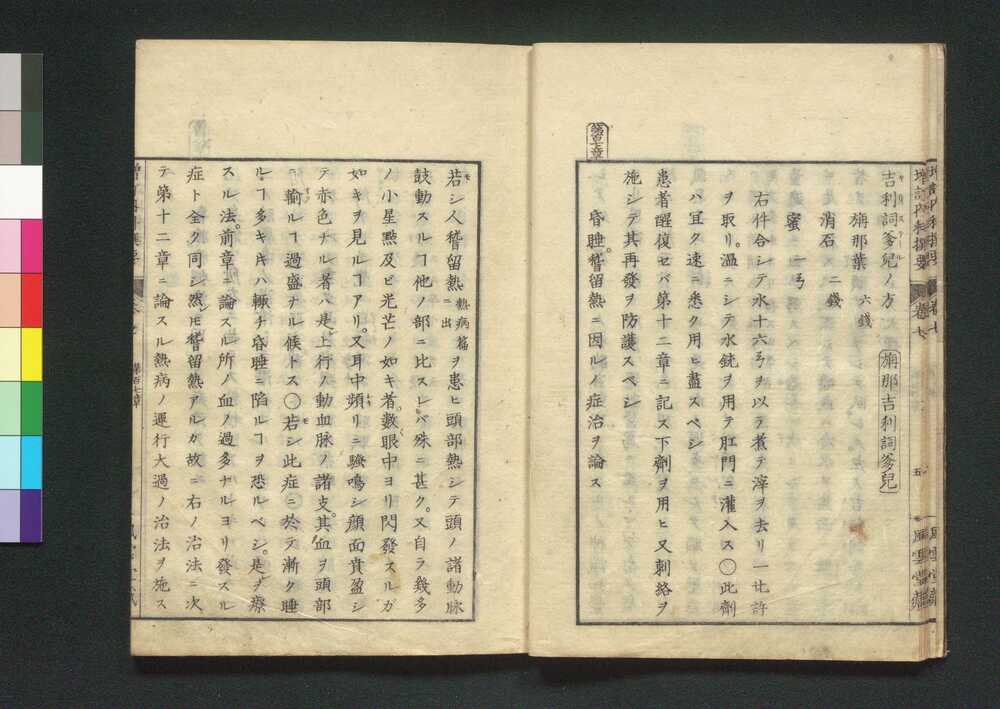 吉利詞爹兒ノ方 旃那吉利詞爹兒
旃那葉 六錢
消石 二錢
蜜 一ㄢ
右件合シテ水十六ㄢヲ以テ煮テ滓ヲ去リ一廿許
ヲ取リ。溫ニシテ水銃ヲ用テ肛門ニ灌入ス〇此劑
ハ宜ク速ニ悉ク用ヒ盡スベシ
患者醒復セバ第十二章ニ記ス下劑ヲ用ヒ又刺絡ヲ
施シテ其再發ヲ防護スベシ
昏睡。稽留熱ニ因ルノ症治ヲ論ス
若シ人稽留熱 熱病篇ニ出 ヲ患ヒ頭部熱シテ頭ノ諸動脉
鼓動スルヿ他ノ部ニ比スレバ殊ニ甚ク。又自ラ幾多
ノ小星點及ビ光芒ノ如キ者數眼中ヨリ閃發スルガ
如キヲ見ルヿアリ。又耳中頻リニ騷鳴シ顏面貴盈シ
テ赤色ナル者ハ是上行ノ動血脉ノ諸支。其血ヲ頭部
ニ輸ルヿ過盛ナル候トス〇若シ此症ニ於テ漸ク睡
ルヿ多キキハ輙チ昏睡ニ陷ルヿヲ恐ルベシ。是ヲ療
スル法。前章ニ論スル所ノ血ノ過多ナルヨリ發スル
症ト全ク同シ然𪜈稽留熱アルガ故ニ右ノ治法ニ次
テ第十二章ニ論スル熱病ノ運行大過ノ治法ヲ施ス